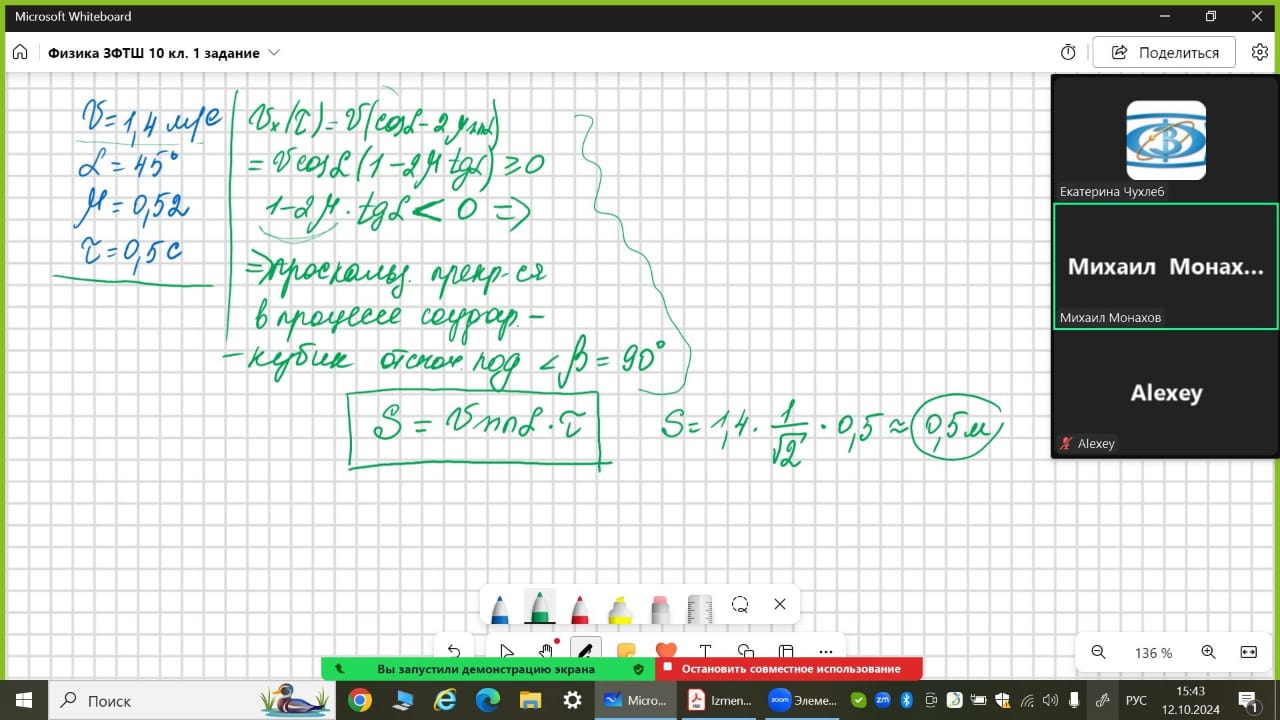 Microsoft Whiteboard
Физика ЗФТШ 10 кл. 1 задание
Поделиться
V = 1,4 м/с
α = 45°
μ = 0,52
τ = 0,5 с
Vx(τ) = V(cosα - 2μ sinα)
= V cosα (1 - 2μ tgα) ≥ 0
1 - 2μ · tgα < 0 =>
=> проскальз. прекр-ся
в процессе соудар. -
- кубик отскоч. под ∠β = 90°
S = V sinα · τ
S = 1,4 · 1/√2 · 0,5 ≈ 0,5 м
Екатерина Чухлеб
Михаил Монах...
Михаил Монахов
Alexey
Alexey
136 %
Вы запустили демонстрацию экрана
Остановить совместное использование
Поиск
Micro...
Izmen...
zoom
Элеме...
zm
РУС
15:43
12.10.2024
1